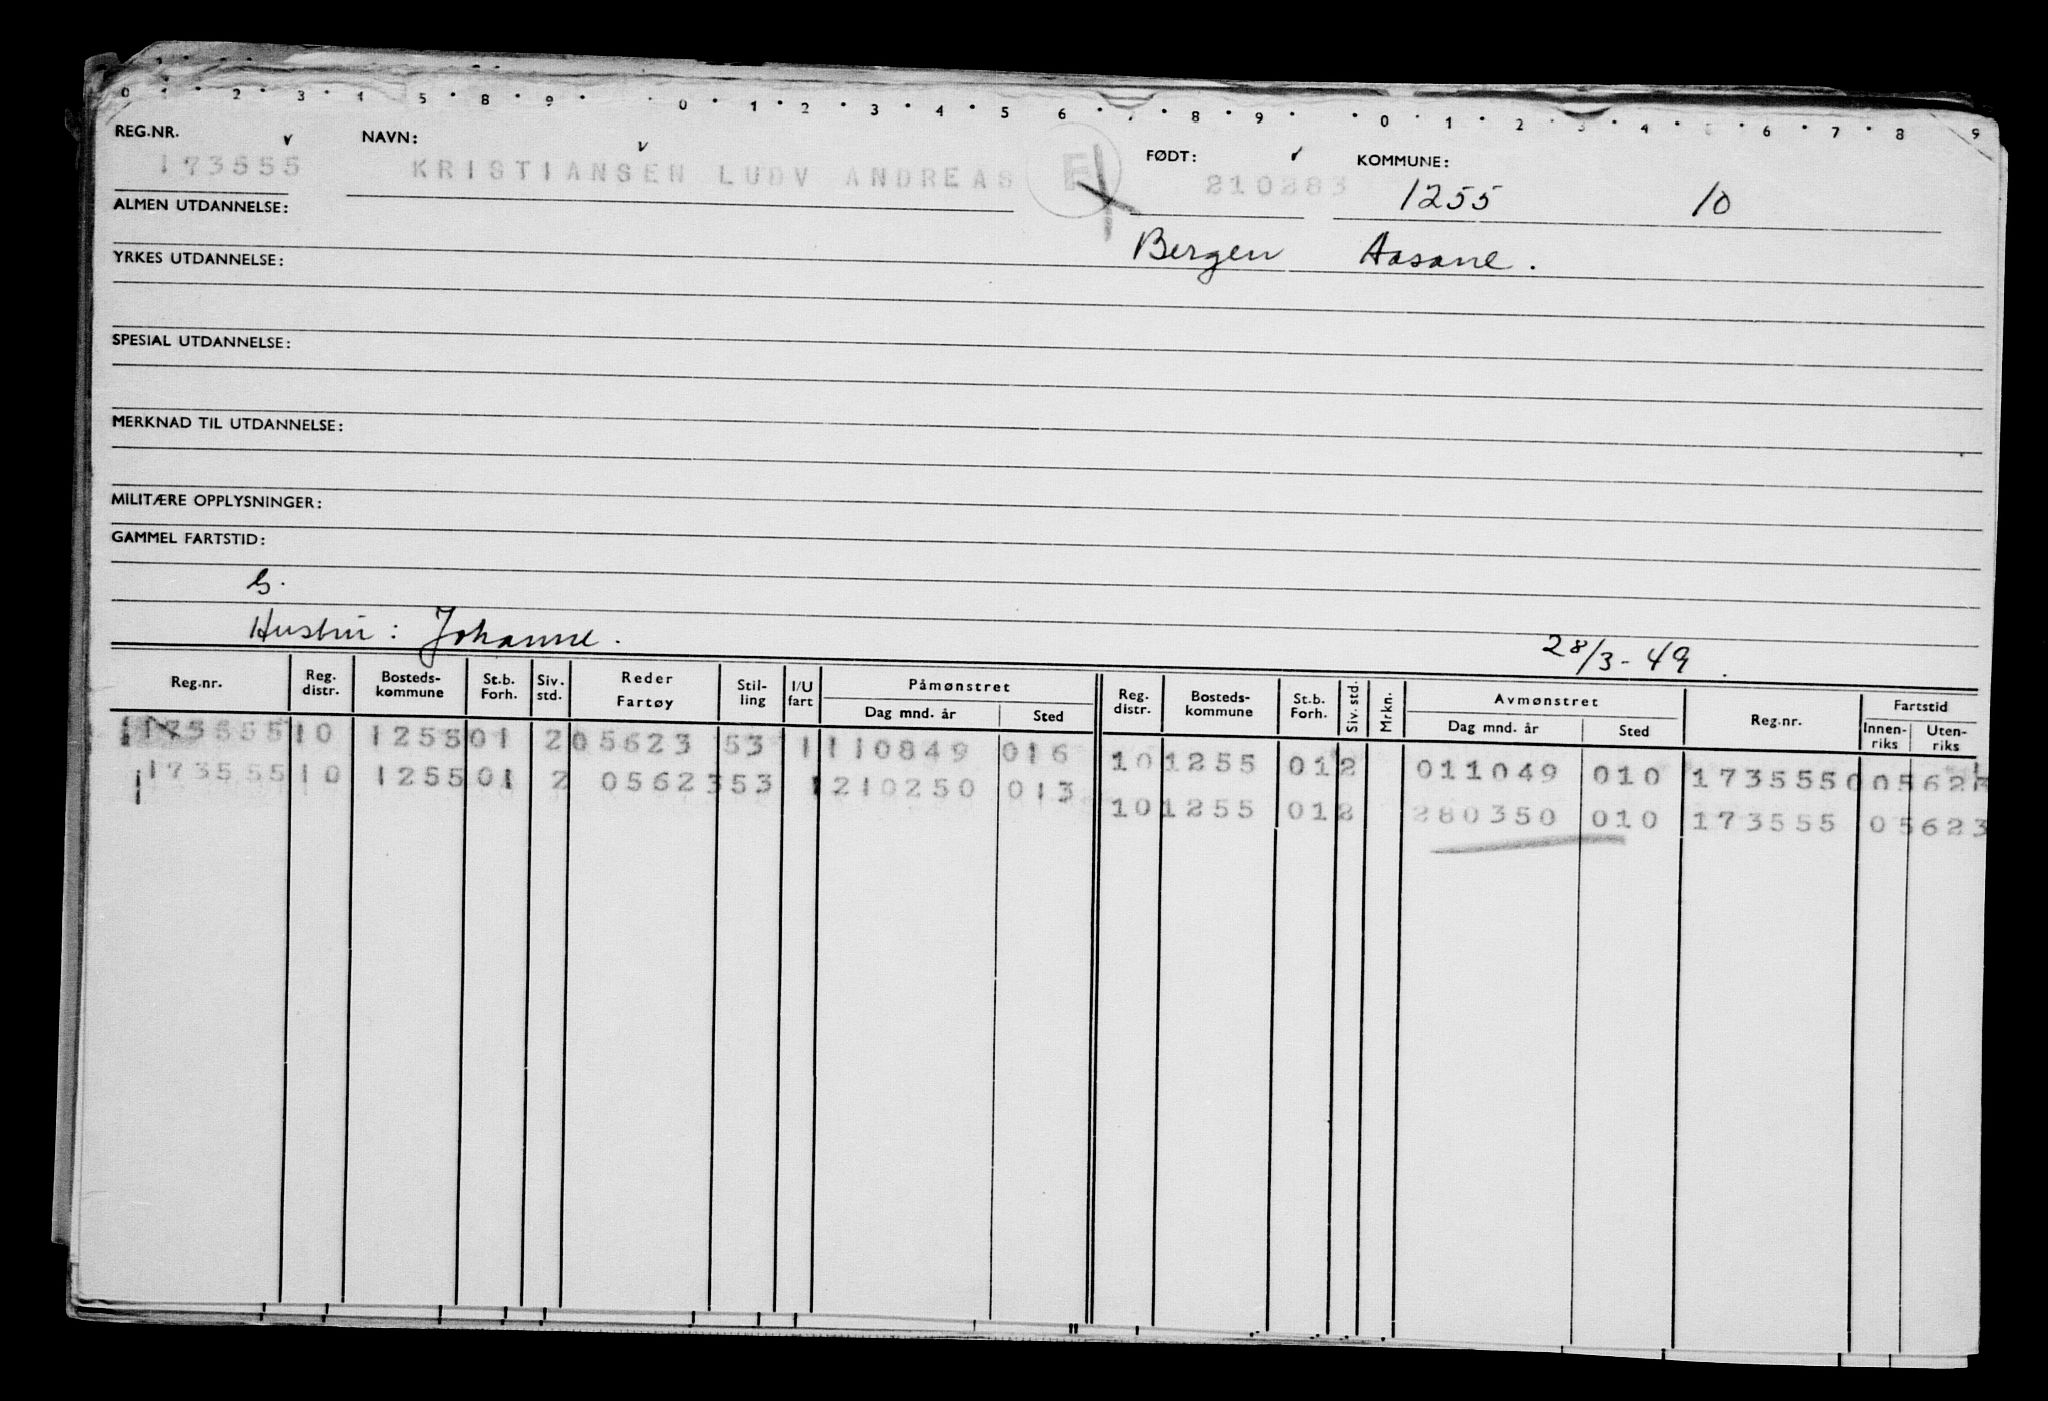 0 1 2 3 4 5 8 9 0 1 2 3 4 5 6 7 8 9 0 1 2 3 4 5 6 7 8 9
REG.NR. v NAVN: v FØDT: v KOMMUNE:
173555 KRISTIANSEN LUDV ANDREAS F 210283 1255 10
ALMEN UTDANNELSE:
Bergen Aasane.
YRKES UTDANNELSE:
SPESIAL UTDANNELSE:
MERKNAD TIL UTDANNELSE:
MILITÆRE OPPLYSNINGER:
GAMMEL FARTSTID:
Hustru: Johanne. 28/3-49.
Reg.nr. Reg. distr. Bosteds-kommune St.b. Forh. Siv. std. Reder Fartøy Stil-ling I/U fart Påmønstret Dag mnd. år Sted Reg. distr. Bosteds-kommune St.b. Forh. Siv. std. Mrkn. Avmønstret Dag mnd. år Sted Reg.nr. Fartstid Innen-riks Uten-riks
173555 10 1255 01 2 05623 53 1 110849 016 10 1255 01 2 011049 010 173555 0 05623
173555 10 1255 01 2 05623 53 1 210250 013 10 1255 01 2 280350 010 173555 05623